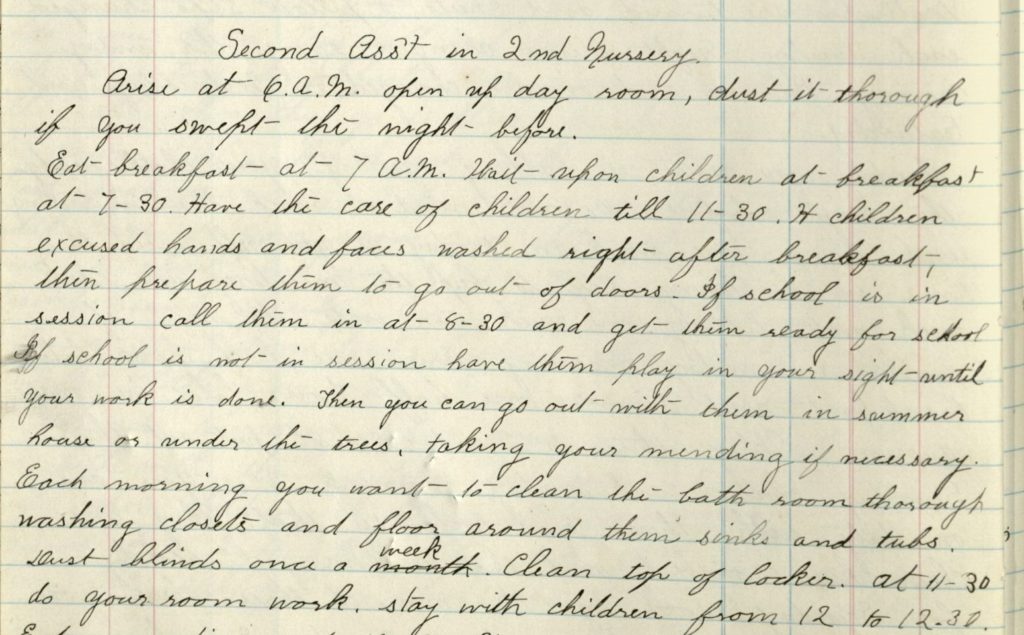 Second Ass't in 2nd Nursery.
Arise at 6.A.M. open up day room, dust it thorough
if you swept the night before.
Eat breakfast at 7 A.M. Wait upon children at breakfast
at 7-30. Have the care of children till 11-30. H children
excused hands and faces washed right after breakfast,
then prepare them to go out of doors. If school is in
session call them in at 8-30 and get them ready for school
If school is not in session have them play in your sight until
your work is done. Then you can go out with them in summer
house or under the trees, taking your mending if necessary.
Each morning you want to clean the bath room thorough
washing closets and floor around them sinks and tubs.
Dust blinds once a week month. Clean top of locker. at 11-30
do your room work. stay with children from 12 to 12.30.